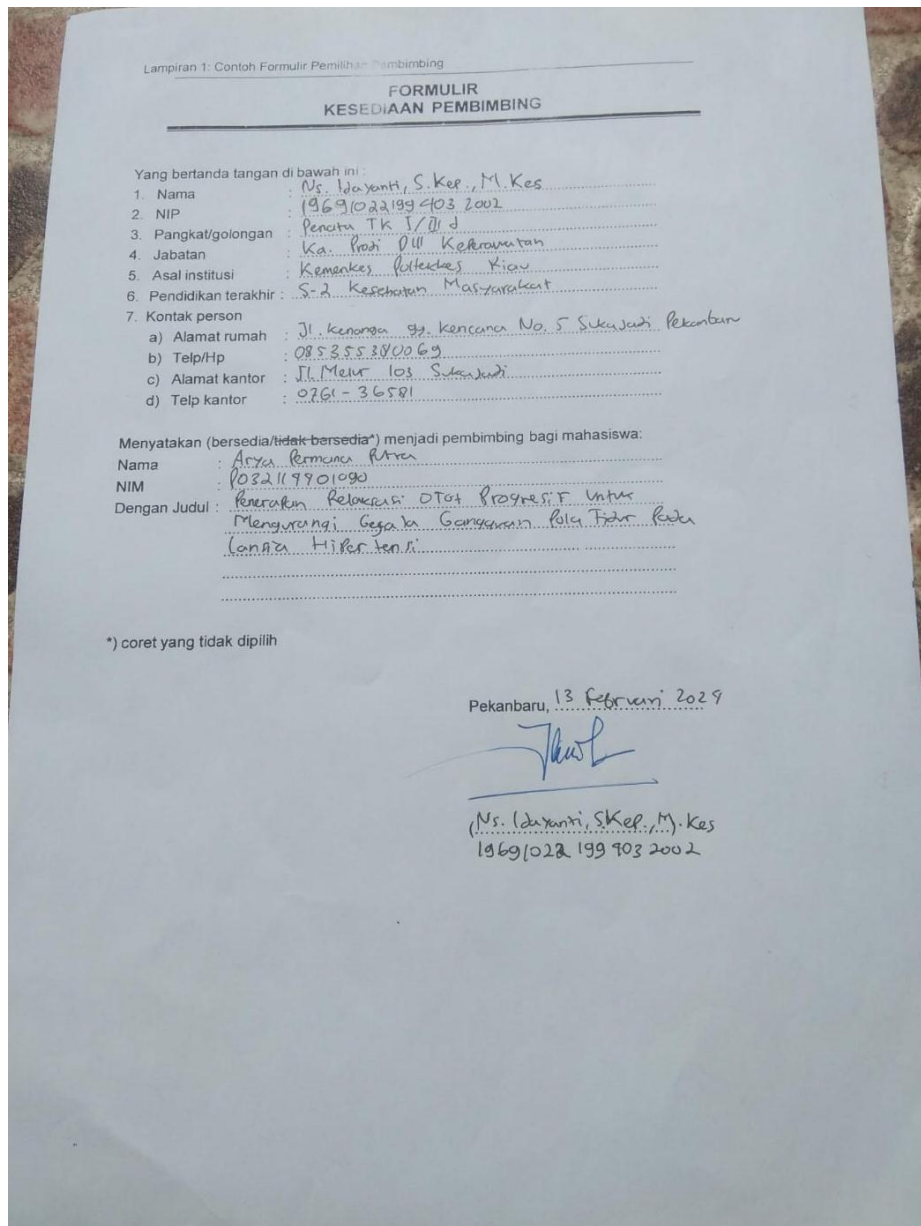 Lampiran 1: Contoh Formulir Pemilihan Pembimbing
FORMULIR
KESEDIAAN PEMBIMBING
Yang bertanda tangan di bawah ini :
1. Nama : Ns. Idayanti, S.Kep., M.Kes
2. NIP : 19691022199403 2002
3. Pangkat/golongan : Penata TK I/III d
4. Jabatan : Ka. Prodi DIII Keperawatan
5. Asal institusi : Kemenkes Poltekkes Riau
6. Pendidikan terakhir : S-2 Kesehatan Masyarakat
7. Kontak person
a) Alamat rumah : Jl. Kenanga gg. Kencana No. 5 Sukajadi Pekanbaru
b) Telp/Hp : 085355380069
c) Alamat kantor : Jl. Melur 103 Sukajadi
d) Telp kantor : 0761-36581
Menyatakan (bersedia/tidak bersedia*) menjadi pembimbing bagi mahasiswa:
Nama : Arya Permana Putra
NIM : P032119901090
Dengan Judul : Penerapan Relaksasi Otot Progresif Untuk
Mengurangi Gejala Gangguan Pola Tidur Pada
Lansia Hipertensi
*) coret yang tidak dipilih
Pekanbaru, 13 Februari 2024
(Ns. Idayanti, S.Kep., M.Kes
19691022 199403 2002